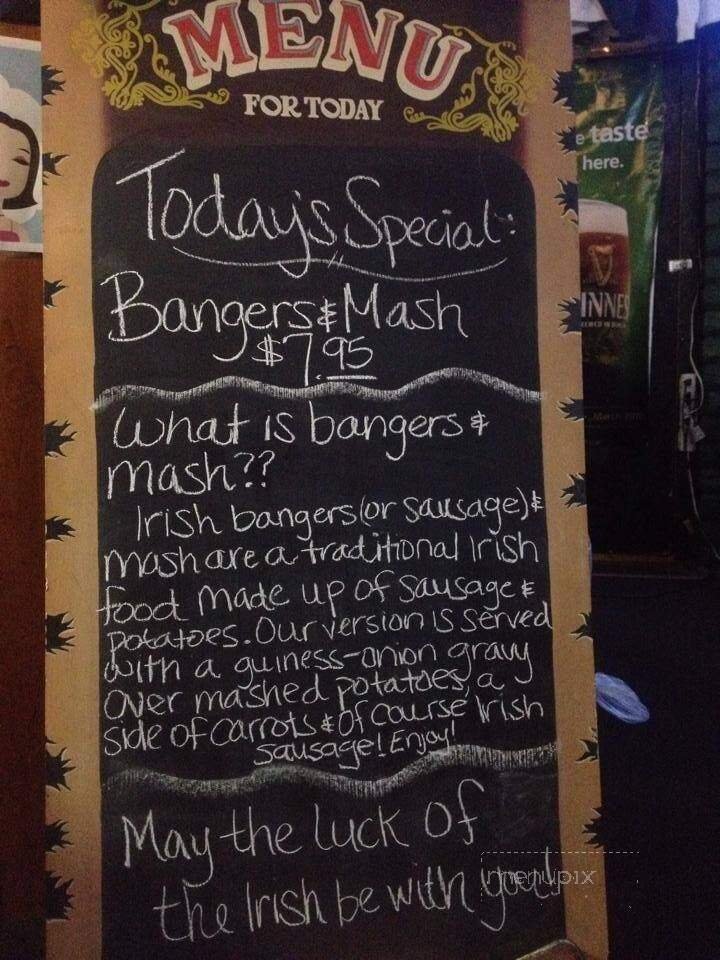 MENU
FOR TODAY
Today's Special:
Bangers & Mash
$7.95
What is bangers &
mash??
Irish bangers (or sausage) &
mash are a traditional Irish
food made up of sausage &
potatoes. Our version is served
with a guiness-onion gravy
over mashed potatoes, a
side of carrots & of course Irish
sausage! Enjoy!
May the luck of
the Irish be with you!
menupix
e taste
here.
INNES